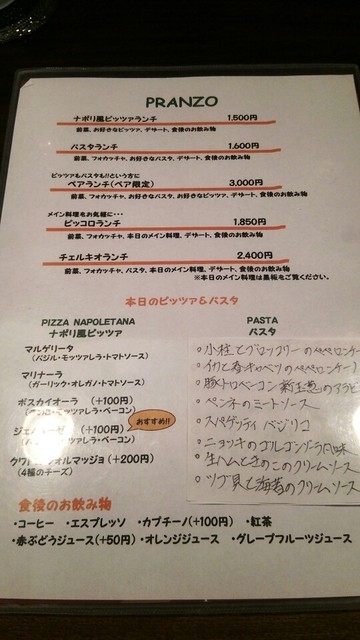 PRANZO
ナポリ風ピッツァランチ 1,500円
前菜、お好きなピッツァ、デザート、食後のお飲み物
パスタランチ 1,600円
前菜、フォカッチャ、お好きなパスタ、デザート、食後のお飲み物
ピッツァもパスタも!!という方に
ペアランチ(ペア限定) 3,000円
前菜、フォカッチャ、お好きなピッツァ、お好きなパスタ、デザート、食後のお飲み物
メイン料理をお気軽に・・・
ピッコロランチ 1,850円
前菜、フォカッチャ、本日のメイン料理、デザート、食後のお飲み物
チェルキオランチ 2,400円
前菜、フォカッチャ、パスタ、本日のメイン料理、デザート、食後のお飲み物
※本日のメイン料理は黒板をご覧ください。
本日のピッツァ&パスタ
PIZZA NAPOLETANA
ナポリ風ピッツァ
マルゲリータ
(バジル・モッツァレラ・トマトソース)
マリナーラ
(ガーリック・オレガノ・トマトソース)
ボスカイオーラ (+100円)
モッツァレラ・ベーコン)
(+100円)
おすすめ!!
モッツァレラ・ベーコン)
クワトロフォルマッジョ (+200円)
(4種のチーズ)
PASTA
パスタ
○小柱とブロッコリーのペペロンチー
○イカと春キャベツのペペロンチー
○豚トロベーコン 新玉葱のアラビ
○ペンネのミートソース
○スパゲッティ バジリコ
○ニョッキのゴルゴンゾーラ風味
○生ハムときのこのクリームソース
○ツブ貝と海苔のクリームソース
食後のお飲み物
・コーヒー ・エスプレッソ ・カプチーノ(+100円) ・紅茶
・赤ぶどうジュース(+50円) ・オレンジジュース ・グレープフルーツジュース